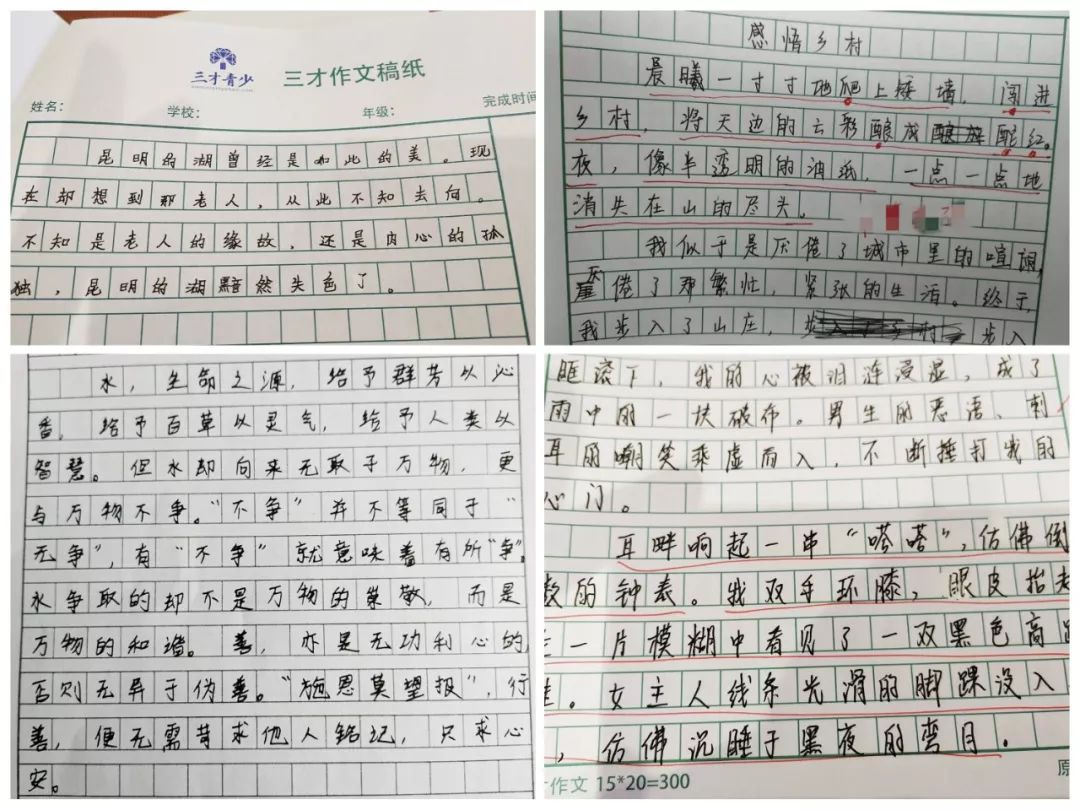 三才青少
三才作文稿纸
姓名: 学校: 年级: 完成时间
昆明的湖曾经是如此的美。现
在却想到那老人,从此不知去向。
不知是老人的缘故,还是内心的孤
独,昆明的湖黯然失色了。
感悟乡村
晨曦一寸寸地爬上矮墙,闯进
乡村,将天边的云彩酿成酡红。
夜,像半透明的油纸,一点一点地
消失在山的尽头。
我似乎是厌倦了城市里的喧闹,
厌倦了那繁忙,紧张的生活。终于,
我步入了山庄,步入
水,生命之源,给予群芳以沁
香,给予百草以灵气,给予人类以
智慧。但水却向来无取于万物,更
与万物不争。“不争”并不等同于“
无争”,有“不争”就意味着有所“争”。
水争取的却不是万物的崇敬,而是
万物的和谐。善,亦是无功利心的,
否则无异于伪善。“施恩莫望报”,行
善,便无需苛求他人铭记,只求心
安。
眶滚下,我的心被泪涟浸湿,成了
雨中的一块破布。男生的恶语、刺
耳的嘲笑乘虚而入,不断捶打我的
心门。
耳畔响起一串“嗒嗒”,仿佛倒
数的钟表。我双手环膝,眼皮抬起
一片模糊中看见了一双黑色高跟
鞋。女主人线条光滑的脚踝没入
,仿佛沉睡于黑夜的弯月。
作文 15*20=300